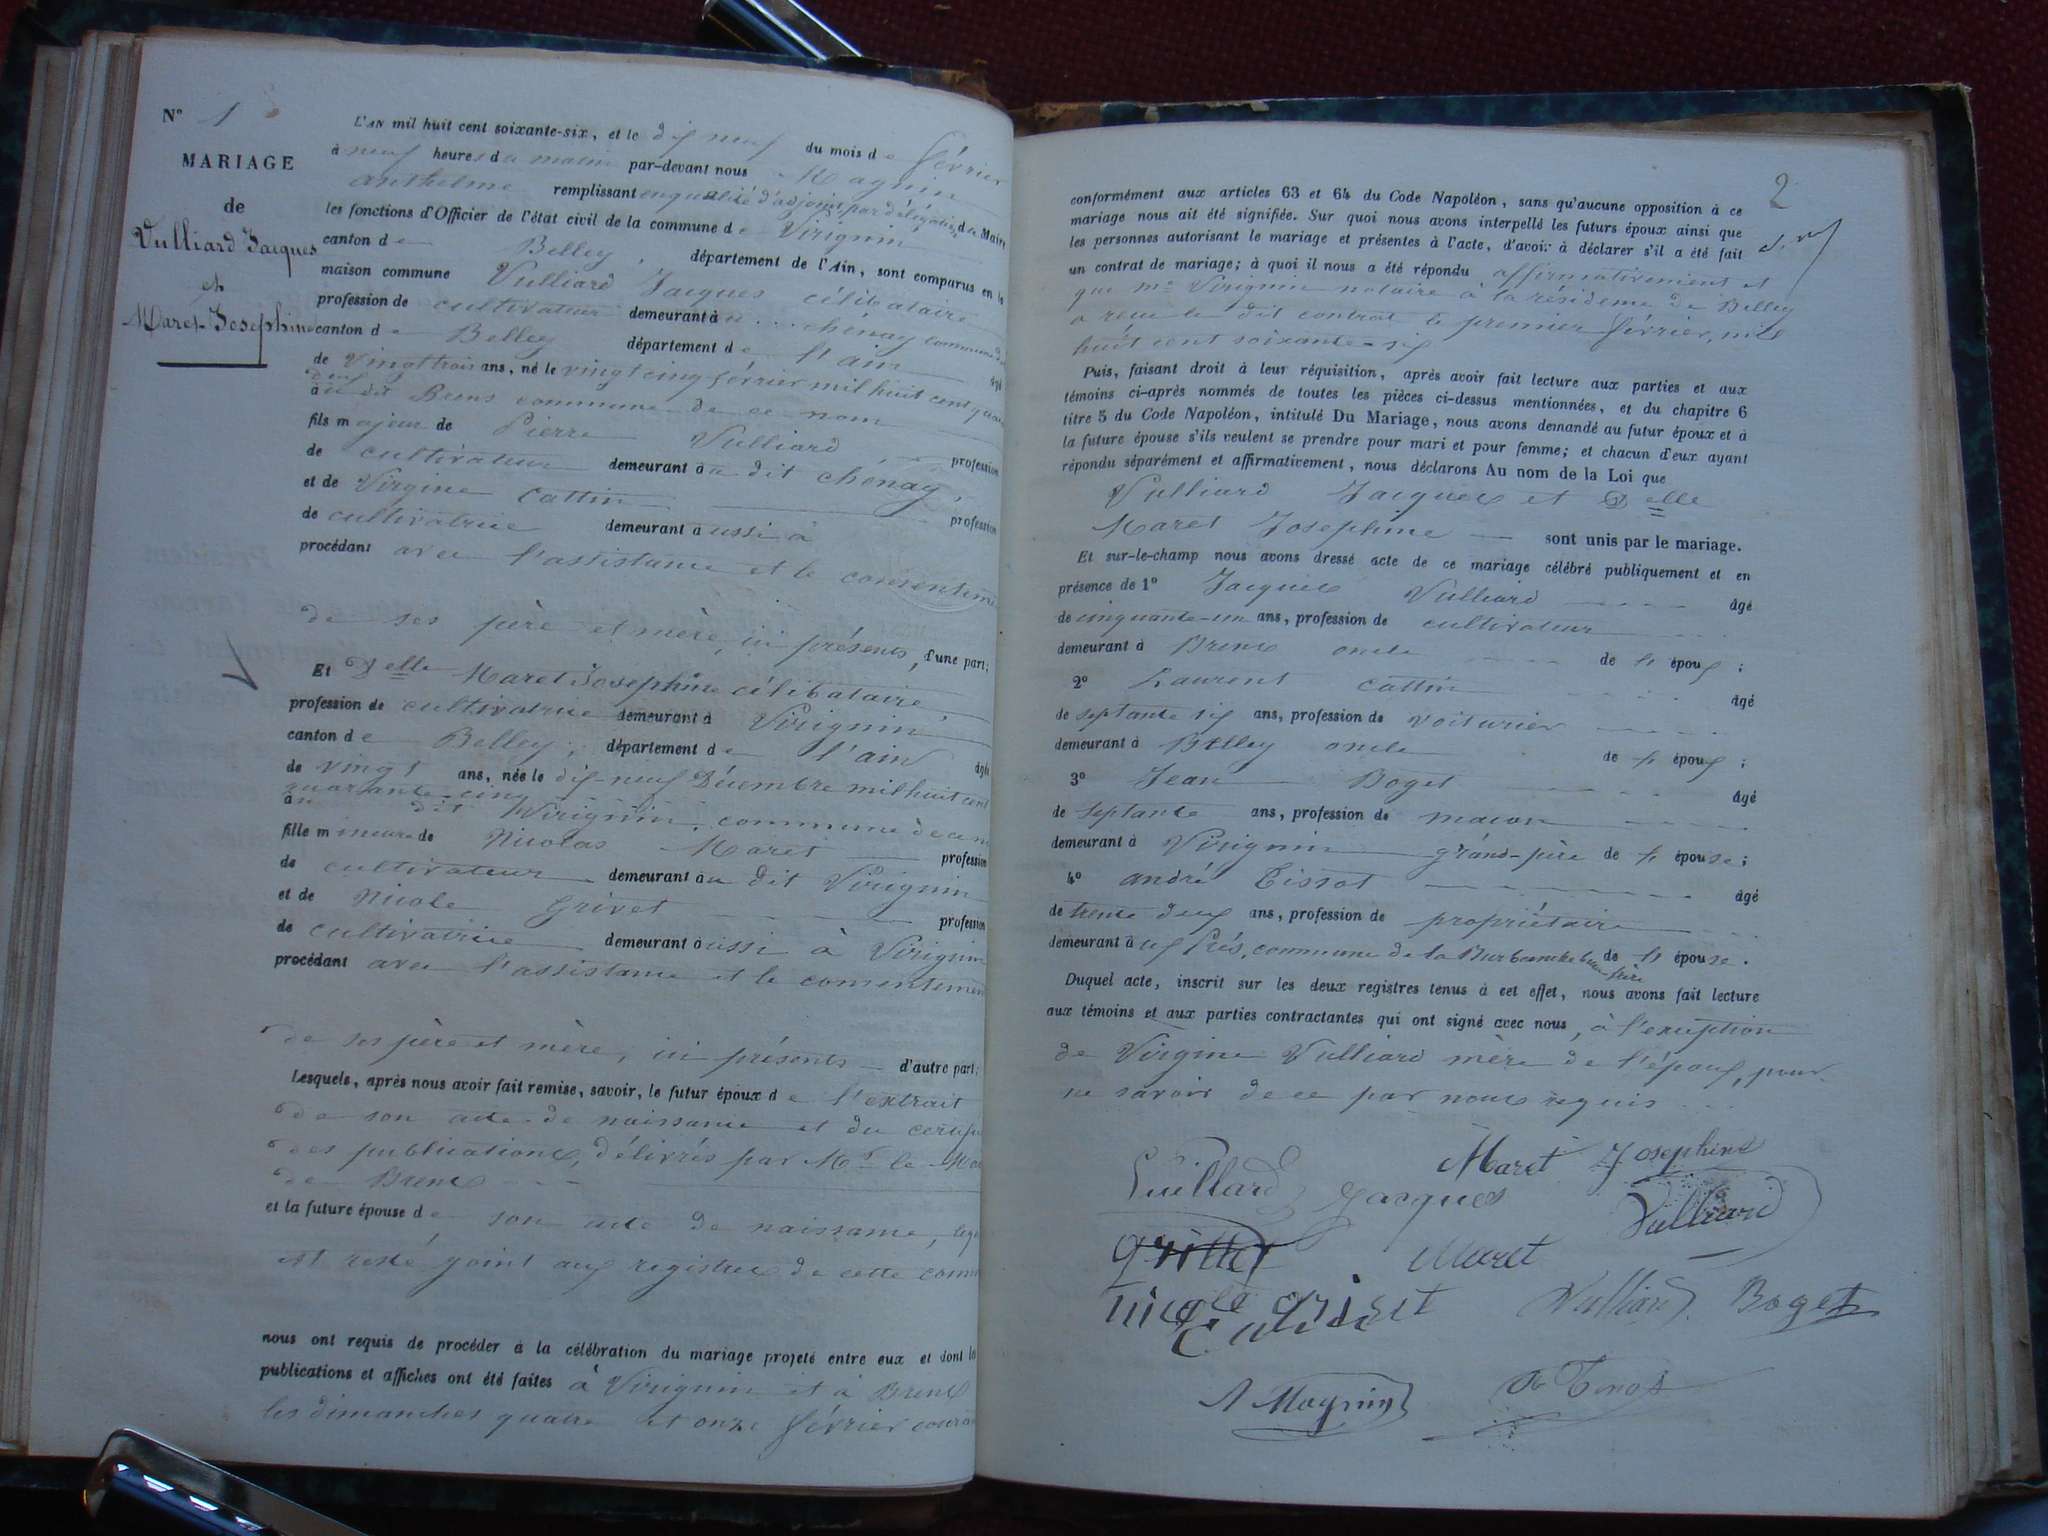 N° 1
MARIAGE
de
Vulliard Jacques
et
Maret Josephine
L'AN mil huit cent soixante-six, et le dix neuf du mois de février
à neuf heures du matin par-devant nous Magnin
anthelme remplissant en qualité d'adjoint par délégation du Maire
les fonctions d'Officier de l'état civil de la commune de Virignin
canton de Belley, département de l'Ain, sont comparus en la
maison commune Vulliard Jacques célibataire
profession de cultivateur demeurant à chénay commune de
canton de Belley département de l'ain âgé
de vingt trois ans, né le vingt cinq février mil huit cent quara
deux
au dit Brens commune de ce nom
fils majeur de Pierre Vulliard, profession
de cultivateur demeurant au dit chénay,
et de Virgine Cattin profession
de cultivatrice demeurant aussi à
procédant avec l'assistance et le consenteme
de ses père et mère, ici présents, d'une part;
Et Delle Maret Josephine célibataire,
profession de cultivatrice demeurant à Virignin
canton de Belley, département de l'ain âgée
de vingt ans, née le dix-neuf Décembre mil huit cent
quarante-cinq
au dit Virignin, commune de ce n
fille mineure de Nicolas Maret profession
de cultivateur demeurant au dit Virignin
et de Nicole Grivet profession
de cultivatrice demeurant aussi à Virignin
procédant avec l'assistance et le consentemen
de ses père et mère, ici présents d'autre part;
Lesquels, après nous avoir fait remise, savoir, le futur époux de l'extrait
de son acte de naissance et du certifi
des publications, délivrés par Mr le Ma
de Brens
et la future épouse de son acte de naissance, lequ
est resté joint aux registres de cette comm
nous ont requis de procéder à la célébration du mariage projeté entre eux et dont les
publications et affiches ont été faites à Virignin et à Brens
les dimanches quatre et onze février coura
2
conformément aux articles 63 et 64 du Code Napoléon, sans qu'aucune opposition à ce
mariage nous ait été signifiée. Sur quoi nous avons interpellé les futurs époux ainsi que
les personnes autorisant le mariage et présentes à l'acte, d'avoir à déclarer s'il a été fait
un contrat de mariage; à quoi il nous a été répondu affirmativement et
que me Virignin notaire à la résidence de Belley
a reçu le dit contrat le premier février, mil
huit cent soixante-six
Puis, faisant droit à leur réquisition, après avoir fait lecture aux parties et aux
témoins ci-après nommés de toutes les pièces ci-dessus mentionnées, et du chapitre 6
titre 5 du Code Napoléon, intitulé Du Mariage, nous avons demandé au futur époux et à
la future épouse s'ils veulent se prendre pour mari et pour femme; et chacun d'eux ayant
répondu séparément et affirmativement, nous déclarons Au nom de la Loi que
Vulliard Jacques et Delle
Maret Josephine sont unis par le mariage.
Et sur-le-champ nous avons dressé acte de ce mariage célébré publiquement et en
présence de 1° Jacques Vulliard âgé
de cinquante-un ans, profession de cultivateur
demeurant à Brens oncle de l' époux;
2° Laurent Cattin âgé
de septante six ans, profession de voiturier
demeurant à Belley oncle de l' époux;
3° Jean Boget âgé
de septante ans, profession de maçon
demeurant à Virignin grand-père de l' épouse;
4° andré Tissot âgé
de trente deux ans, profession de propriétaire
demeurant aux Prés, commune de la Burbanche beau-frère de l' épouse.
Duquel acte, inscrit sur les deux registres tenus à cet effet, nous avons fait lecture
aux témoins et aux parties contractantes qui ont signé avec nous, à l'exception
de Virgine Vulliard mère de l'époux, pour
ne savoir de ce par nous requis
Vuillard Jacques Maret Josephine
Vulliard
Maret
nicole grivet Vulliard Boget
A Magnin